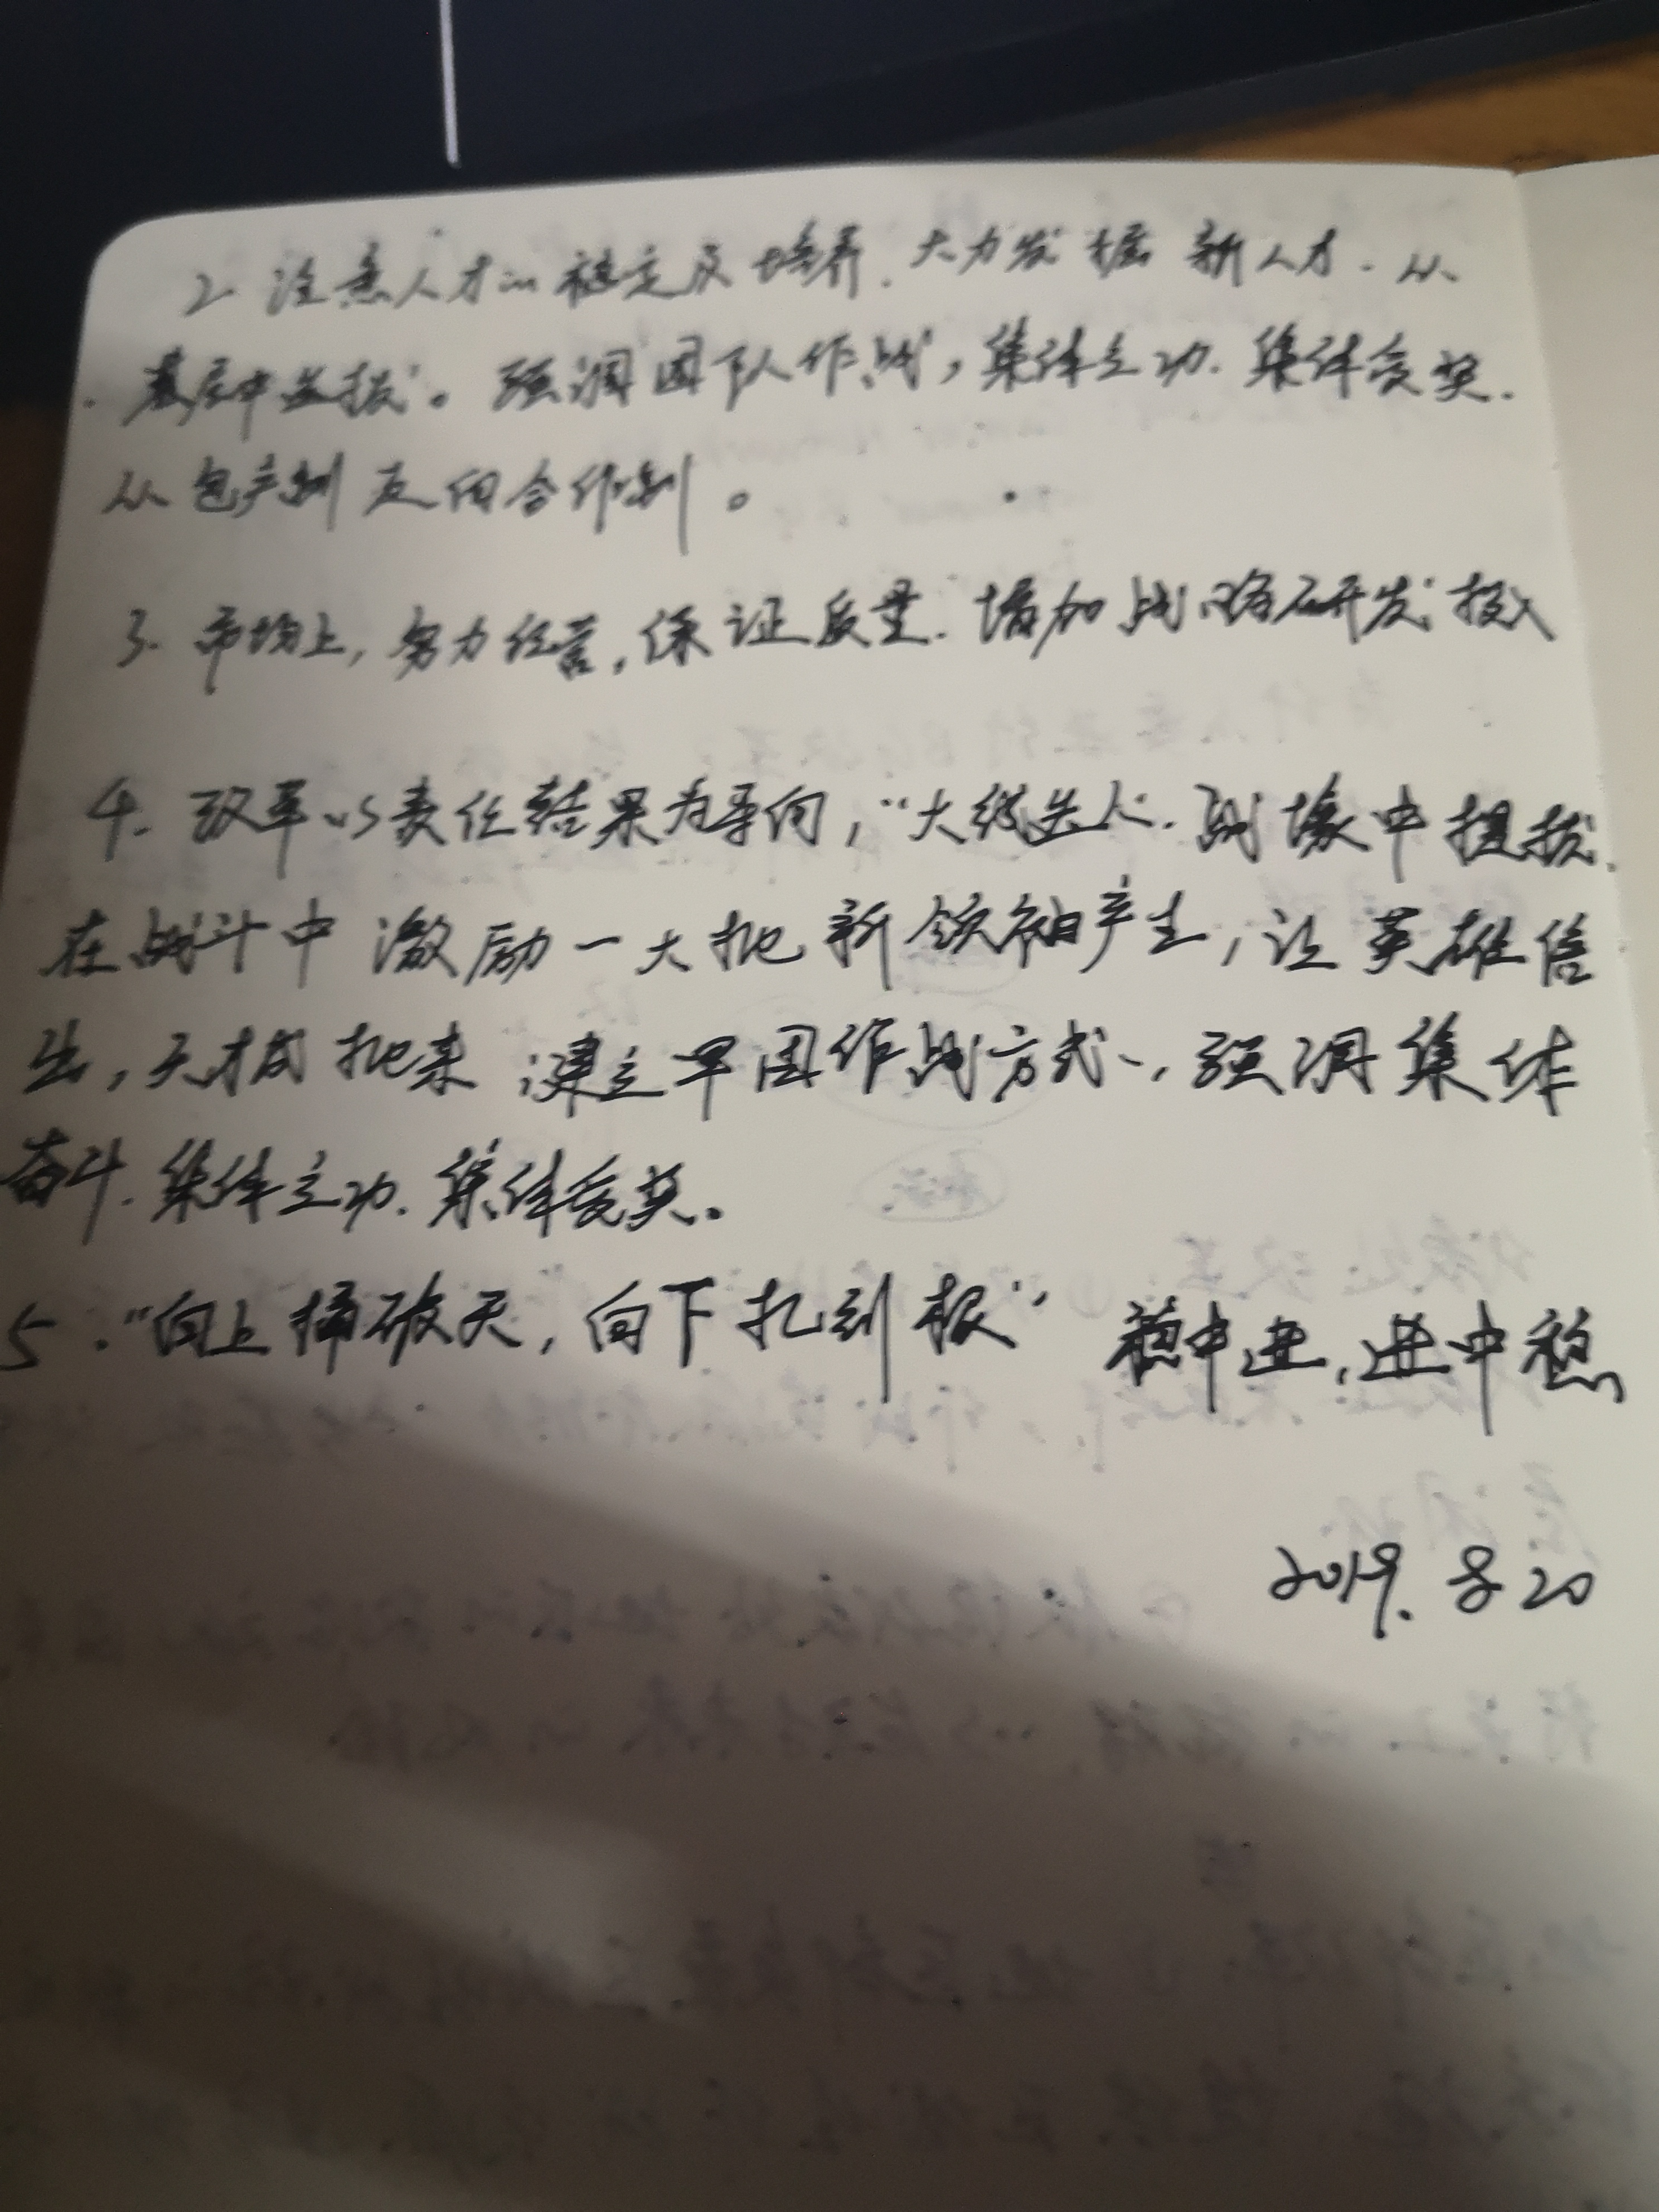 2. 注意人才的稳定及培养. 大力发掘 新人才. 从
基层中选拔。强调团队作战, 集体立功. 集体受奖.
从包产制 走向合作制。
3. 市场上, 努力经营, 保证质量. 增加战略研发投入
4. 改革以责任结果为导向, “大线出人. 战壕中提拔.
在战斗中 激励一大批 新领袖产生, 让 英雄倍
出, 天才成批来 建立军团作战方式, 强调集体
奋斗. 集体立功. 集体受奖.
5. “向上捅破天, 向下扎到根” 稳中进, 进中稳
2019. 8 20